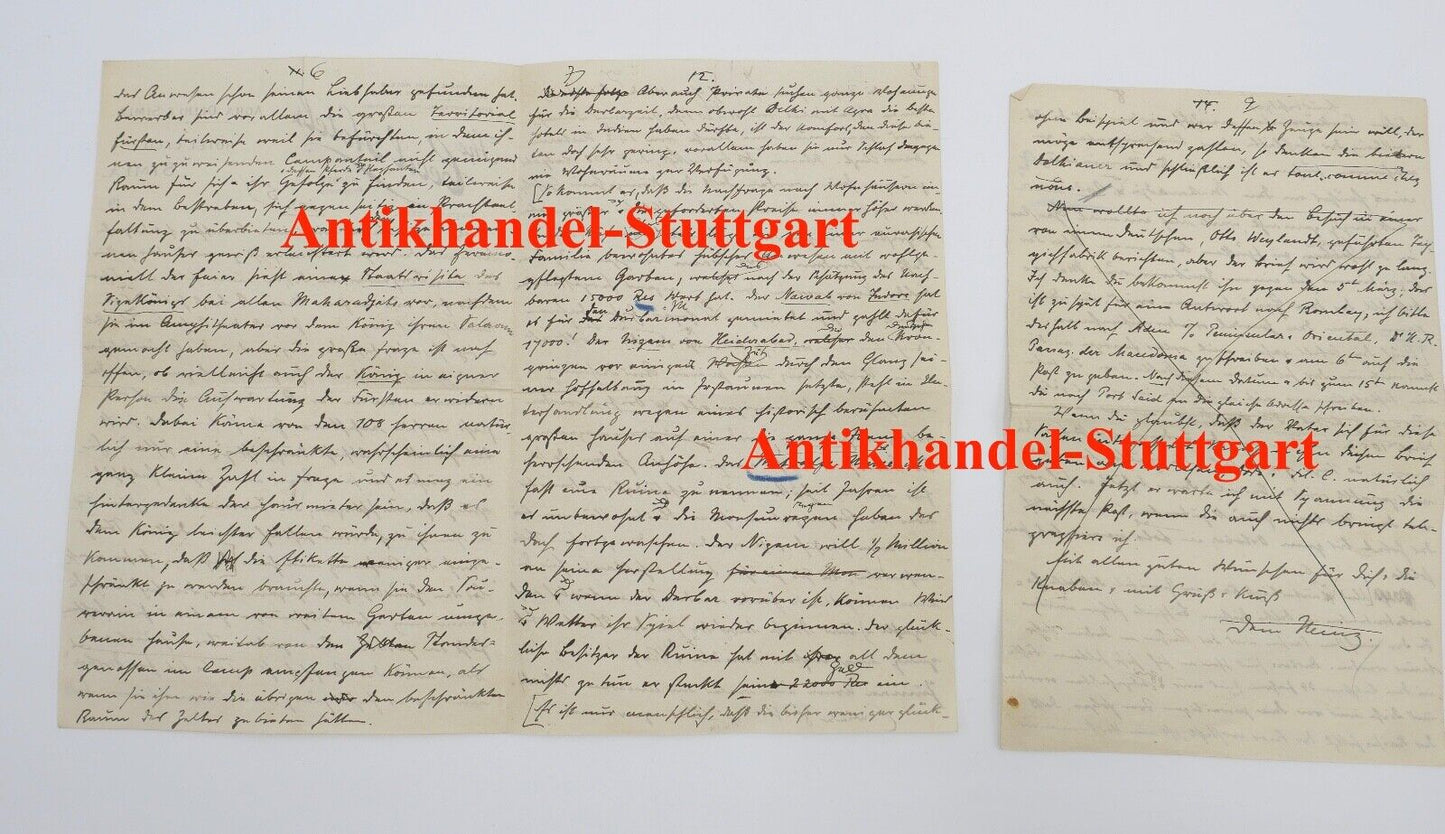 6
das Anwesen schon seinen Liebhaber gefunden hat.
Bewerber sind vor allem die großen Territorial
fürsten, teilweise weil sie befürchten, in dem ih-
nen zuzuweisenden Campanteil nicht genügend
dessen Pferde
Raum für sich + ihr Gefolge zu finden, teilweise
in dem Bestreben, sich gegenseitig an Prachtent
faltung zu überbieten,
nen Häuser erleichtert wird. Das
niell der Feier sieht einen Staatsvisite des
Vizekönigs bei allen Maharadjahs vor, nachdem
sie im Amphitheater vor dem König ihren Salaam
gemacht haben, aber die große Frage ist noch
offen, ob vielleicht auch der König in eigner
Person die Aufwartung der Fürsten erwidern
wird. Dabei käme von den 108 Herren natür-
lich nur eine beschränkte, wahrscheinlich eine
ganz kleine Zahl in Frage und es mag ein
Hintergedanke der Hausmieter sein, daß es
dem König leichter fallen würde, zu ihnen zu
kommen, daß die Etikette weniger einge-
schränkt zu werden brauchte, wenn sie den Sou-
verain in einem von weiten Garten umge-
benen Hause, weitab von den Standes-
genossen im Camp empfangen können, als
wenn sie ihm wie die übrigen den beschränkten
Raum des Zeltes zu bieten hätten.
7 12.
Aber auch Private suchen ganze Wohnungen
für die Darbarzeit, denn obwohl Delhi mit Agra die besten
Hotels in Indien haben dürfte, ist der Komfort, den diese bie-
ten doch sehr gering, vorallem haben sie nur Schlaf dagegen
nie Wohnräume zur Verfügung.
[So kommt es, daß die Nachfrage nach Wohnhäusern im-
mer größer die geforderten Preise immer höher werden.
Familie bewohntes hübsches Anwesen mit wohlge-
pflegtem Garten, das nach der Schätzung des Nach-
barn 15000 Rs Wert hat. Der Nawab von Indore hat
es für den Durbarmonat gemietet und zahlt dafür
17000! Der Nizam von Heiderabad, der den deutschen Kron-
prinzen vor einiger Zeit durch den Glanz sei-
ner Hofhaltung in Erstaunen setzte, steht in Un-
terhandlung wegen eines historisch berühmten
großen Hauses auf einer die ganze be-
herrschenden Anhöhe. Das
fast eine Ruine zu nennen; seit Jahren ist
es unbewohnt und die Monsunregen haben das
Dach fortgewaschen. Der Nizam will ½ Million
an seine Herstellung für einen Mon verwen-
den und wenn der Darbar vorüber ist, können Wind
und Wetter ihr Spiel wieder beginnen. Der glück-
liche Besitzer der Ruine hat mit all dem
Geld
nichts zu tun er steckt sein 22000 Rs ein.
[Es ist nur menschlich, daß die bisher weniger glück-
14. 9
ohne Beispiel und wer dessen Zeuge sein will, der
möge entsprechend zahlen, so denken die biedern
Delhianer und schließlich ist es tout comme chez
nous.
Nun wollte ich noch über den Besuch in einer
von einem Deutschen, Otto Weylandt, geführten Tep
pichfabrik berichten, aber der Brief wird wohl zu lang.
Ich denke du bekommst ihn gegen den 5t März. Das
ist zu spät für eine Antwort nach Bombay, ich bitte
deshalb nach Aden c/o Peninsular & Oriental, Dr H. R.
Passag. der Macedonia zu schreiben + am 6t auf die
Post zu geben. Nach diesem Datum + bis zum 15t kannst
du nach Port Said an die gleiche Adresse schreiben.
Wenn du glaubst, daß der Vater sich für diese
diesen Brief
natürlich
auch. Jetzt erwarte ich mit Spannung die
nächste Post, wenn die auch nichts bringt tele-
graphiere ich.
Mit allen guten Wünschen für dich + die
Knaben + mit Gruß + Kuß
Dein Heinz.
Antikhandel-Stuttgart
Antikhandel-Stuttgart